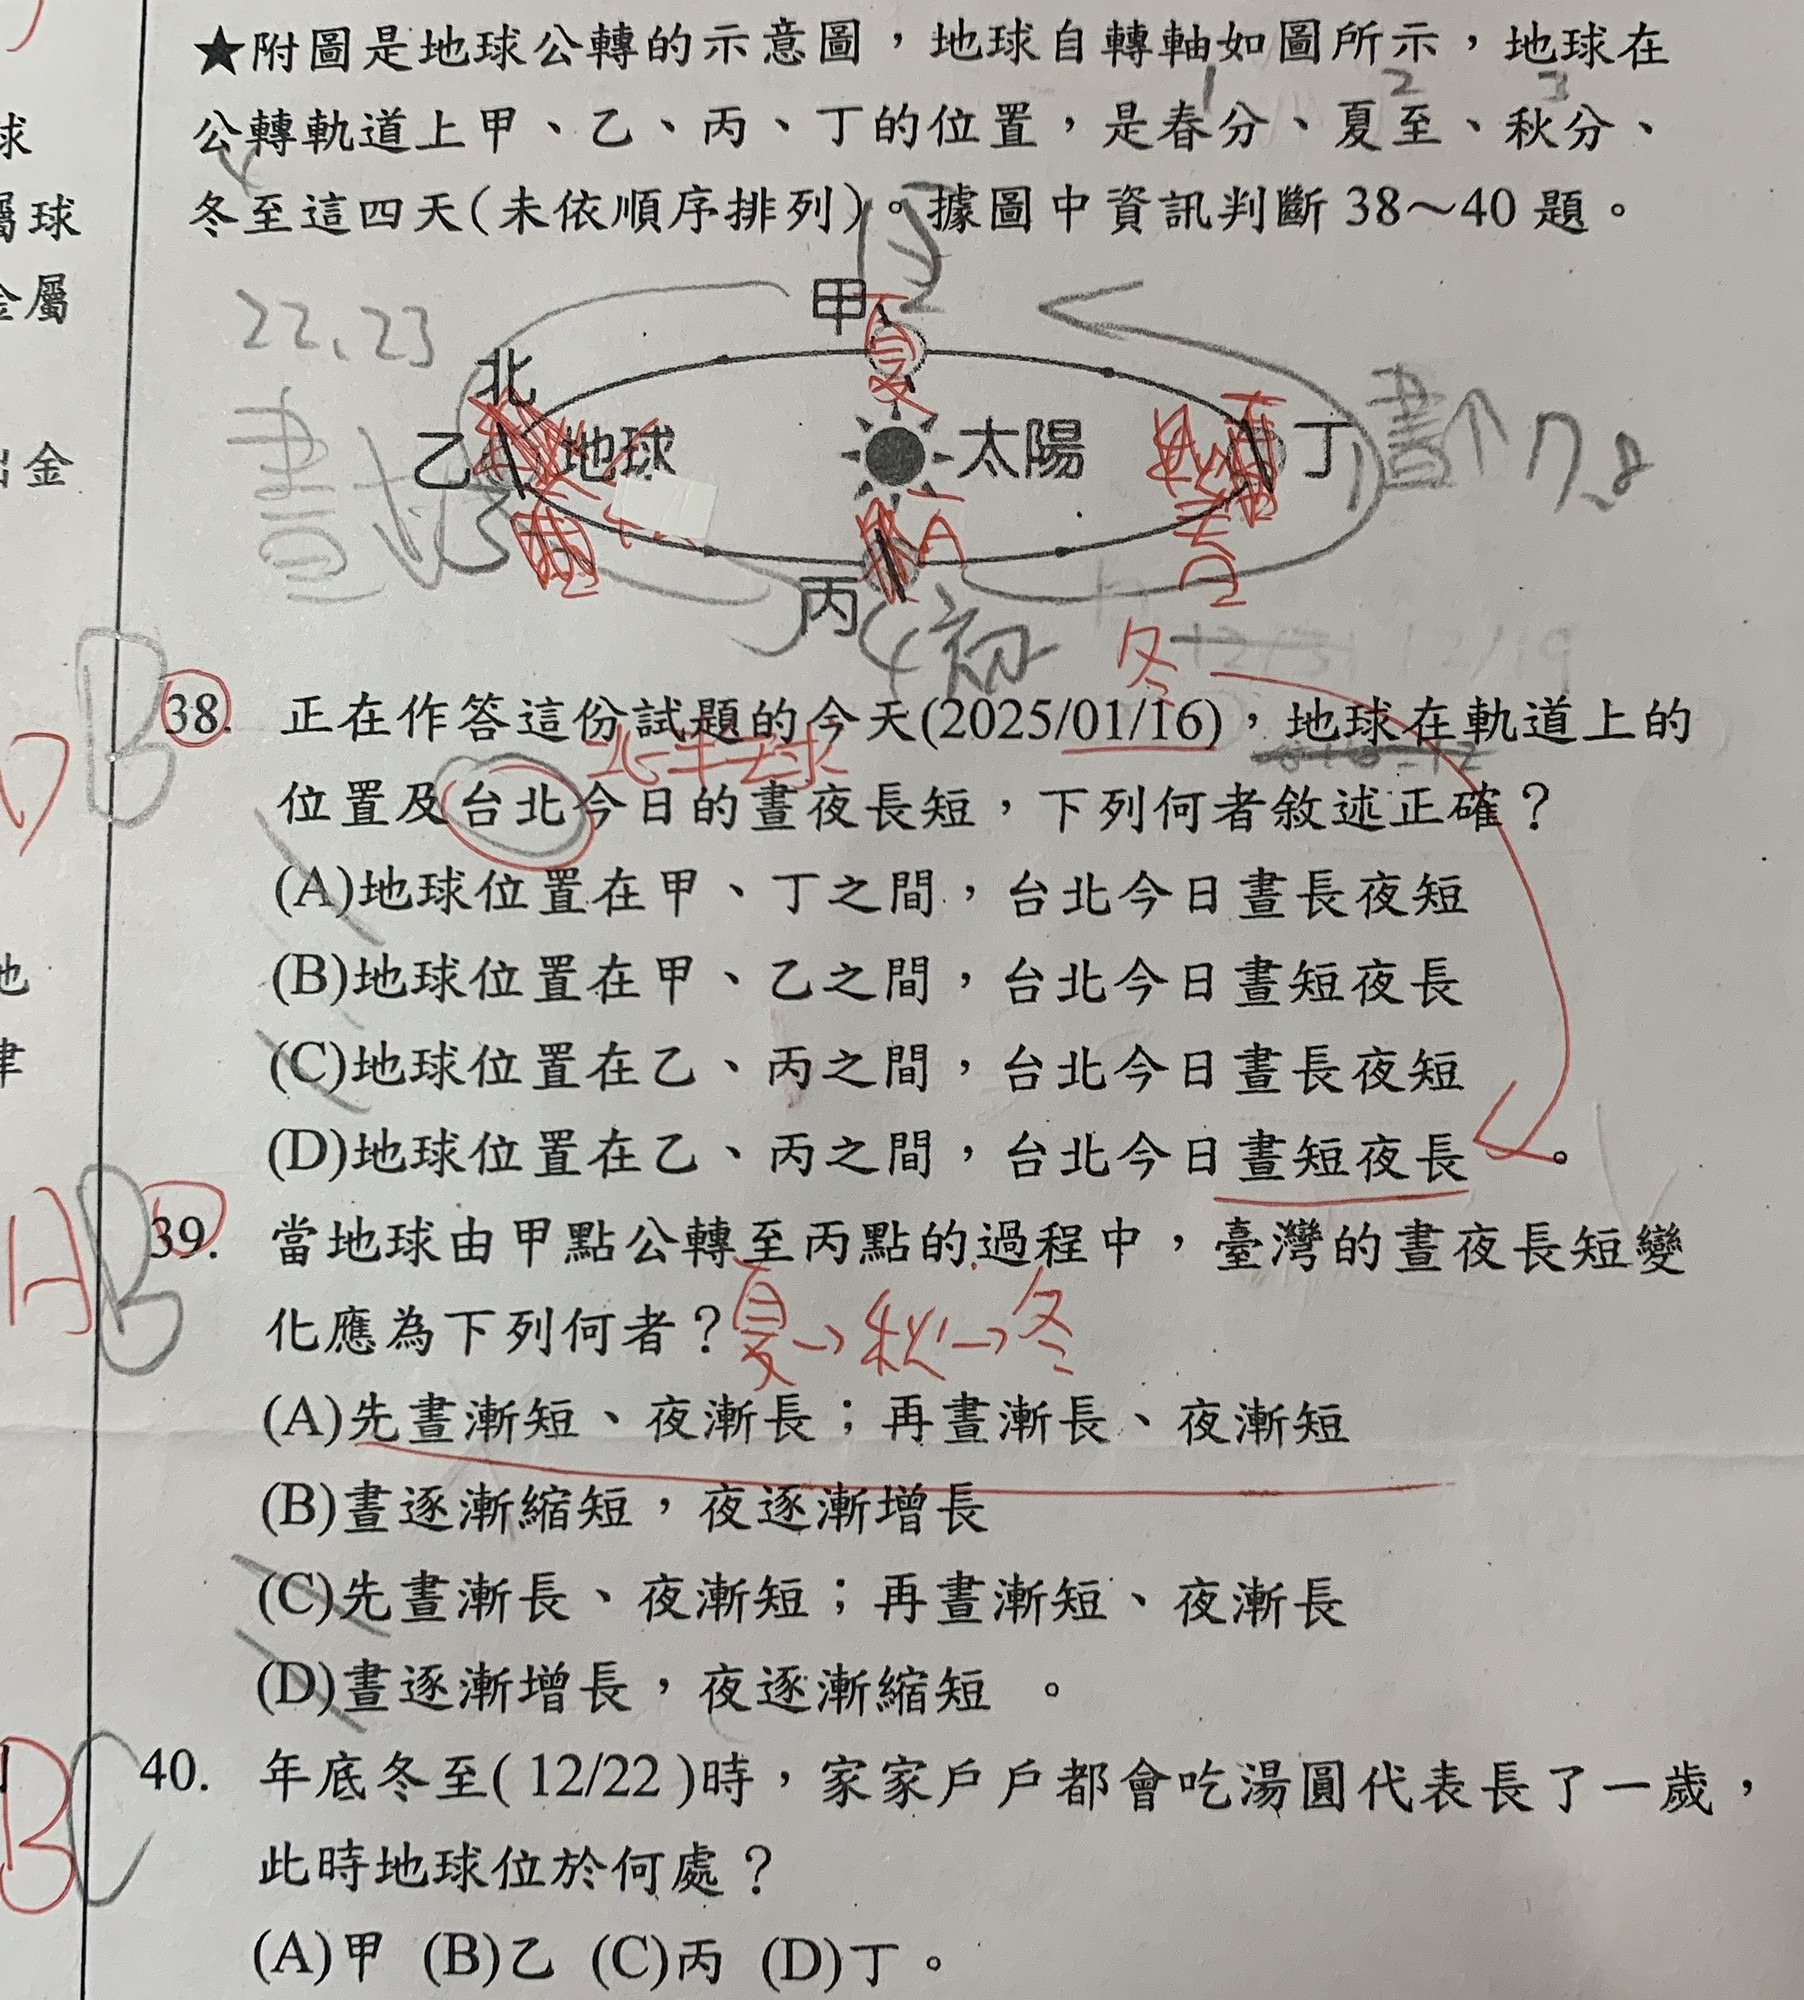 ★附圖是地球公轉的示意圖，地球自轉軸如圖所示，地球在
1 2 3
公轉軌道上甲、乙、丙、丁的位置，是春分、夏至、秋分、
冬至這四天(未依順序排列)。據圖中資訊判斷 38～40 題。
球
屬球
金屬
出金
地
律
22、23
甲
夏
北
乙
地球
太陽
丁
晝↑
7、8
丙
冬
12/19
B
38. 正在作答這份試題的今天(2025/01/16)，地球在軌道上的
北半球
位置及台北今日的晝夜長短，下列何者敘述正確？
(A)地球位置在甲、丁之間，台北今日晝長夜短
(B)地球位置在甲、乙之間，台北今日晝短夜長
(C)地球位置在乙、丙之間，台北今日晝長夜短
(D)地球位置在乙、丙之間，台北今日晝短夜長。
A B
39. 當地球由甲點公轉至丙點的過程中，臺灣的晝夜長短變
化應為下列何者？
夏→秋→冬
(A)先晝漸短、夜漸長；再晝漸長、夜漸短
(B)晝逐漸縮短，夜逐漸增長
(C)先晝漸長、夜漸短；再晝漸短、夜漸長
(D)晝逐漸增長，夜逐漸縮短 。
B C
40. 年底冬至( 12/22 )時，家家戶戶都會吃湯圓代表長了一歲，
此時地球位於何處？
(A)甲 (B)乙 (C)丙 (D)丁。